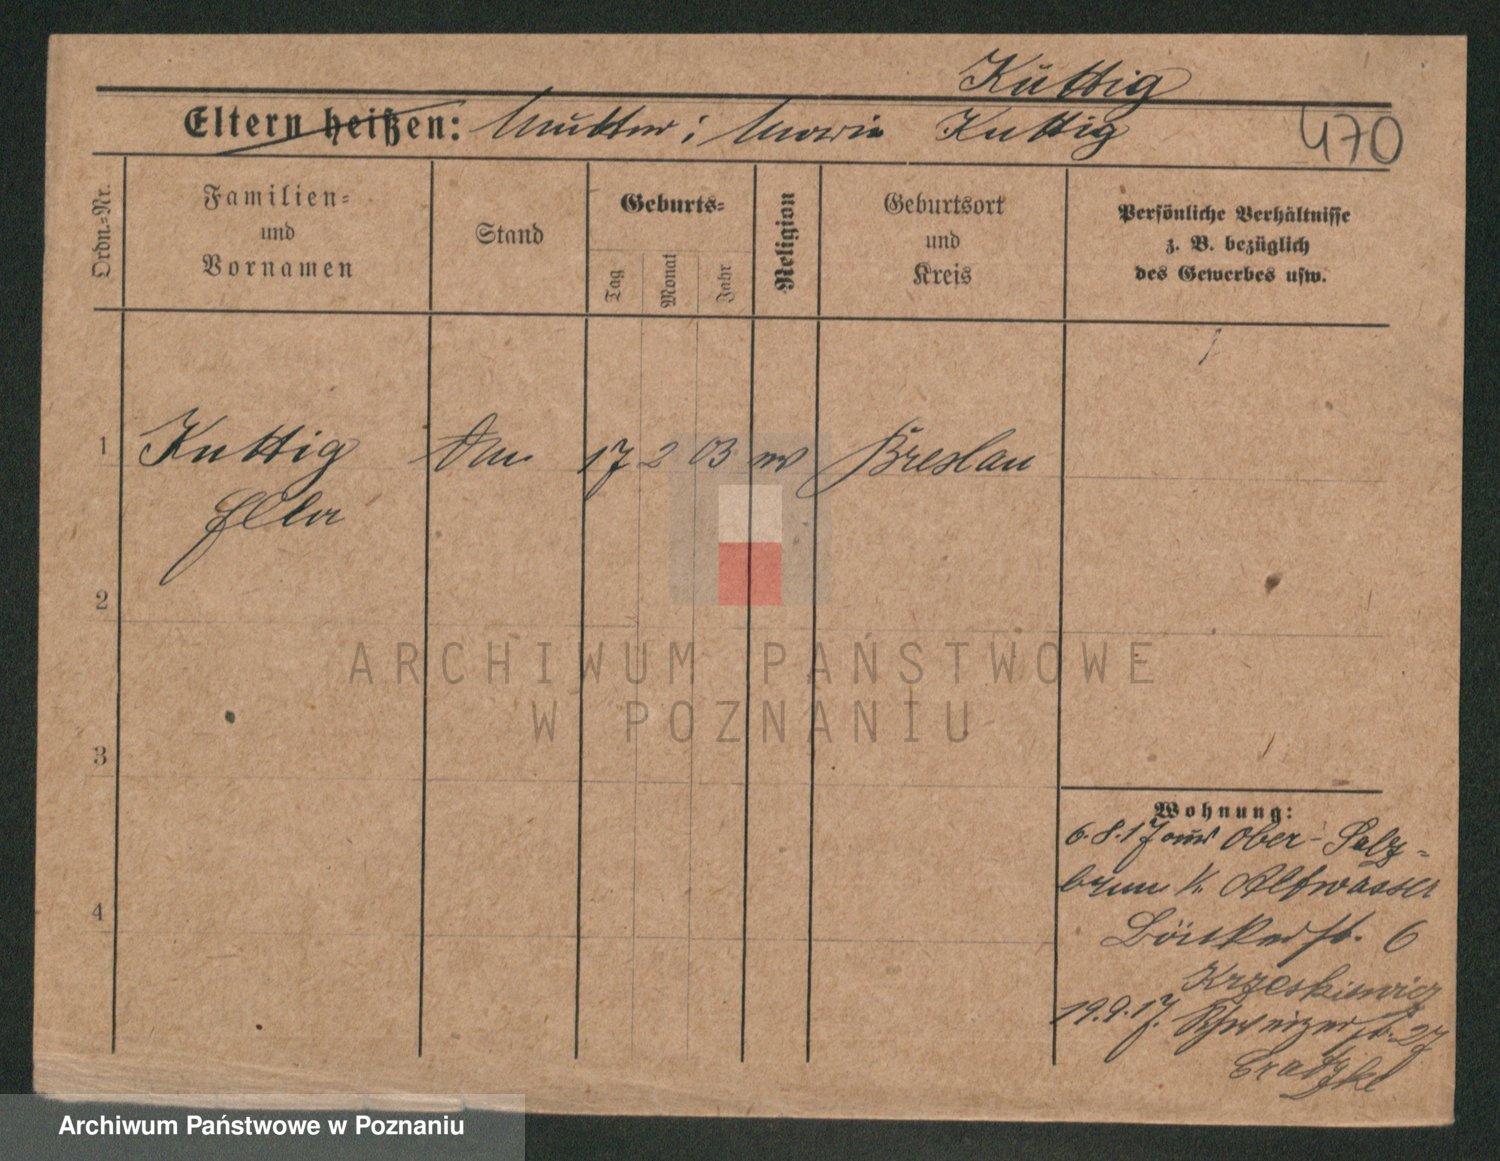 Küttig
Eltern heißen: Mutter: Marie Kuttig
470
Ordn.-Nr.
Familien-
und
Vornamen
Stand
Geburts-
Tag
Monat
Jahr
Religion
Geburtsort
und
Kreis
Persönliche Verhältnisse
z. B. bezüglich
des Gewerbes usw.
1 Kuttig 17 2 03 Breslau
Ella
2
3
4
ARCHIWUM PAŃSTWOWE
W POZNANIU
Wohnung:
6.8.17 aus Ober-Salz-
brunn K. Altwasser
6
Krzeskiewicz
19.9.17. 27
Archiwum Państwowe w Poznaniu